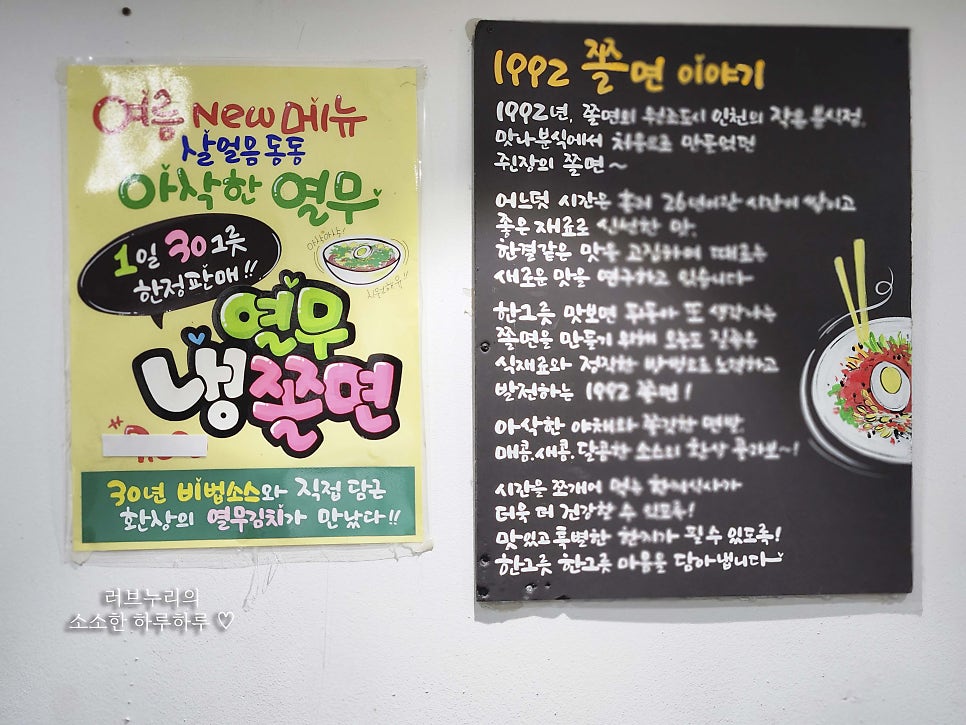 여름 New 메뉴
살얼음동동
아삭한 열무
1일 30그릇
한정판매!!
아삭아삭
열무
냉쫄면
30년 비법소스와 직접 담근
환상의 열무김치가 만났다!!
1992 쫄면 이야기
1992년, 쫄면의 원조도시 인천의 작은 분식점,
맛나분식에서 처음으로 만들었던
쥔장의 쫄면~
어느덧 시간은 흘러 26년이란 시간이 쌓이고
좋은 재료로 신선한 맛,
한결같은 맛을 고집하며 때로는
새로운 맛을 연구하고 있습니다
한그릇 맛보면 뒤돌아 또 생각나는
쫄면을 만들기 위해 오늘도 질좋은
식재료와 정직한 방법으로 노력하고
발전하는 1992 쫄면!
아삭한 야채와 쫄깃한 면발
매콤.새콤.달콤한 소스의 환상 콜라보~!
시간을 쪼개어 먹는 한끼식사가
더욱 더 건강할 수 있도록!
맛있고 특별한 한끼가 될 수 있도록!
한그릇 한그릇 마음을 담아냅니다
러브누리의
소소한 하루하루 ♡